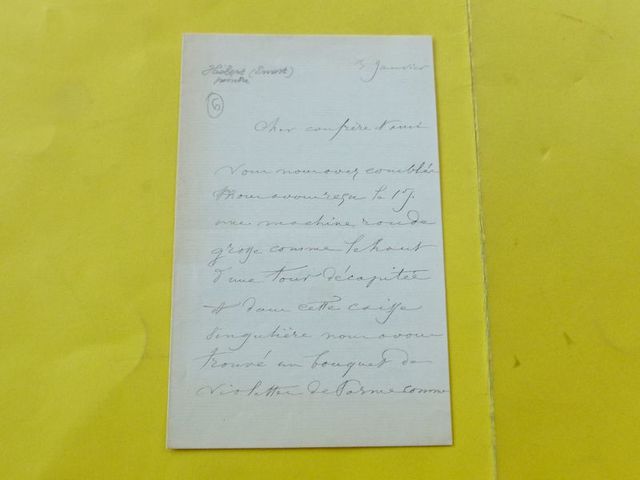 Hébert (Ernest)
peintre
6
3 Janvier
Cher confrère & ami
Vous nous avez comblés
Nous avons reçu le 1er
une machine ronde
grosse comme le haut
d'une tour décapitée
& dans cette caisse
singulière nous avons
trouvé un bouquet de
violettes de Parme comme